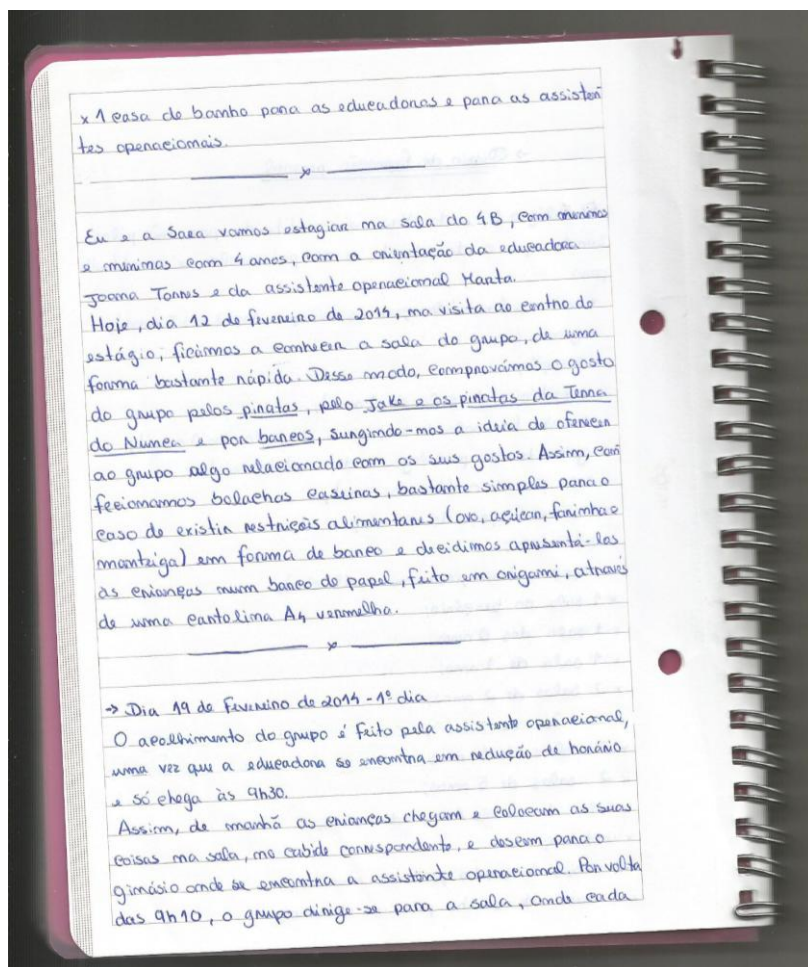 x 1 casa de banho para as educadoras e para as assisten
tes operacionais.
x
Eu e a Sara vamos estagiar na sala do 4B, com meninos
e meninas com 4 anos, com a orientação da educadora
Joana Torres e da assistente operacional Marta.
Hoje, dia 12 de fevereiro de 2014, na visita ao centro de
estágio, ficámos a conhecer a sala do grupo, de uma
forma bastante rápida. Desse modo, comprovámos o gosto
do grupo pelos piratas, pelo Jake e os piratas da Terra
do Nunca e por barcos, surgindo-nos a ideia de oferecer
ao grupo algo relacionado com os seus gostos. Assim, con
feccionamos bolachas caseiras, bastante simples para o
caso de existir restrições alimentares (ovo, açúcar, farinha e
manteiga) em forma de barco e decidimos apresentá-las
às crianças num barco de papel, feito em origami, através
de uma cartolina A4 vermelha.
x
→ Dia 19 de Fevereiro de 2014 - 1º dia
O acolhimento do grupo é feito pela assistente operacional,
uma vez que a educadora se encontra em redução de horário
e só chega às 9h30.
Assim, de manhã as crianças chegam e colocam as suas
coisas na sala, no cabide correspondente, e descem para o
gimásio onde se encontra a assistente operacional. Por volta
das 9h10, o grupo dirige-se para a sala, onde cada